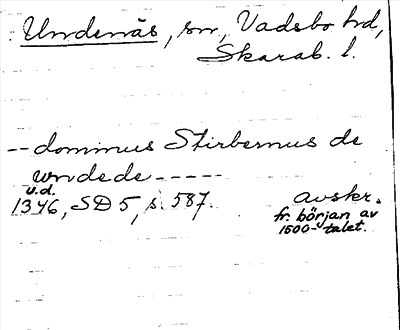 Undenäs, sn, Vadsbo hd,
Skarab. l.
-- dominus Stirbernus de
undede -----
u.d.
1346, SD 5, s. 587. avskr.
fr. början av
1500-talet.